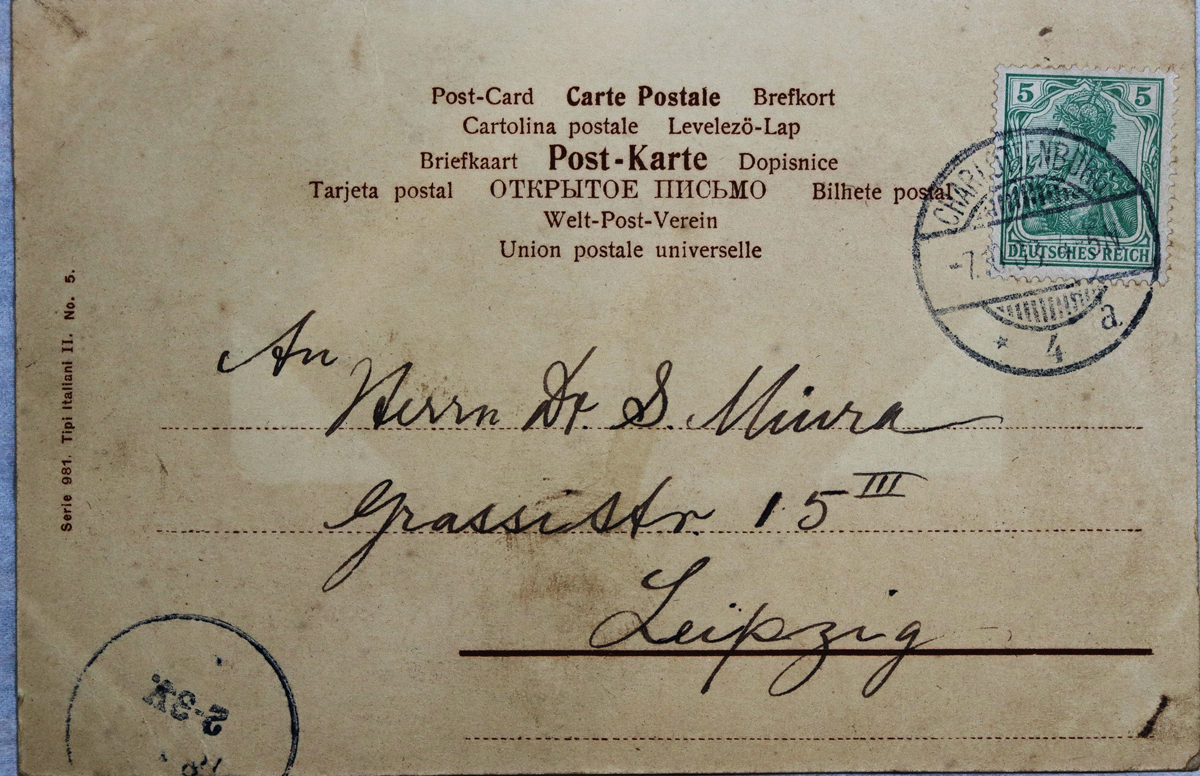 Post-Card Carte Postale Brefkort
Cartolina postale Levelezö-Lap
Briefkaart Post-Karte Dopisnice
Tarjeta postal ОТКРЫТОЕ ПИСЬМО Bilhete postal
Welt-Post-Verein
Union postale universelle
5 5
DEUTSCHES REICH
CHARLOTTENBURG
* 4 a
Serie 981. Tipi Italiani II. No. 5.
An
Herrn Dr. S. Miura
Grassistr. 15 III
Leipzig
2-3V.